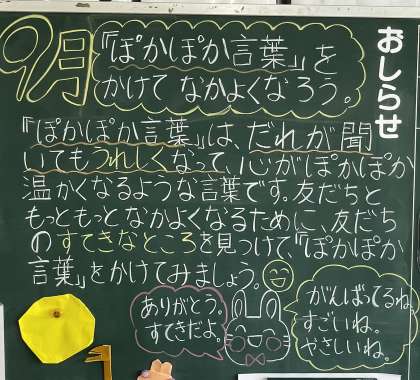 おしらせ
9月
『ぽかぽか言葉』を
かけて なかよくなろう。
『ぽかぽか言葉』は、だれが聞
いてもうれしくなって、心がぽかぽか
温かくなるような言葉です。友だちと
もっともっとなかよくなるために、友だち
のすてきなところを見つけて、『ぽかぽか
言葉』をかけてみましょう。
ありがとう。
すてきだよ。
がんばってるね。
すごいね。
やさしいね。